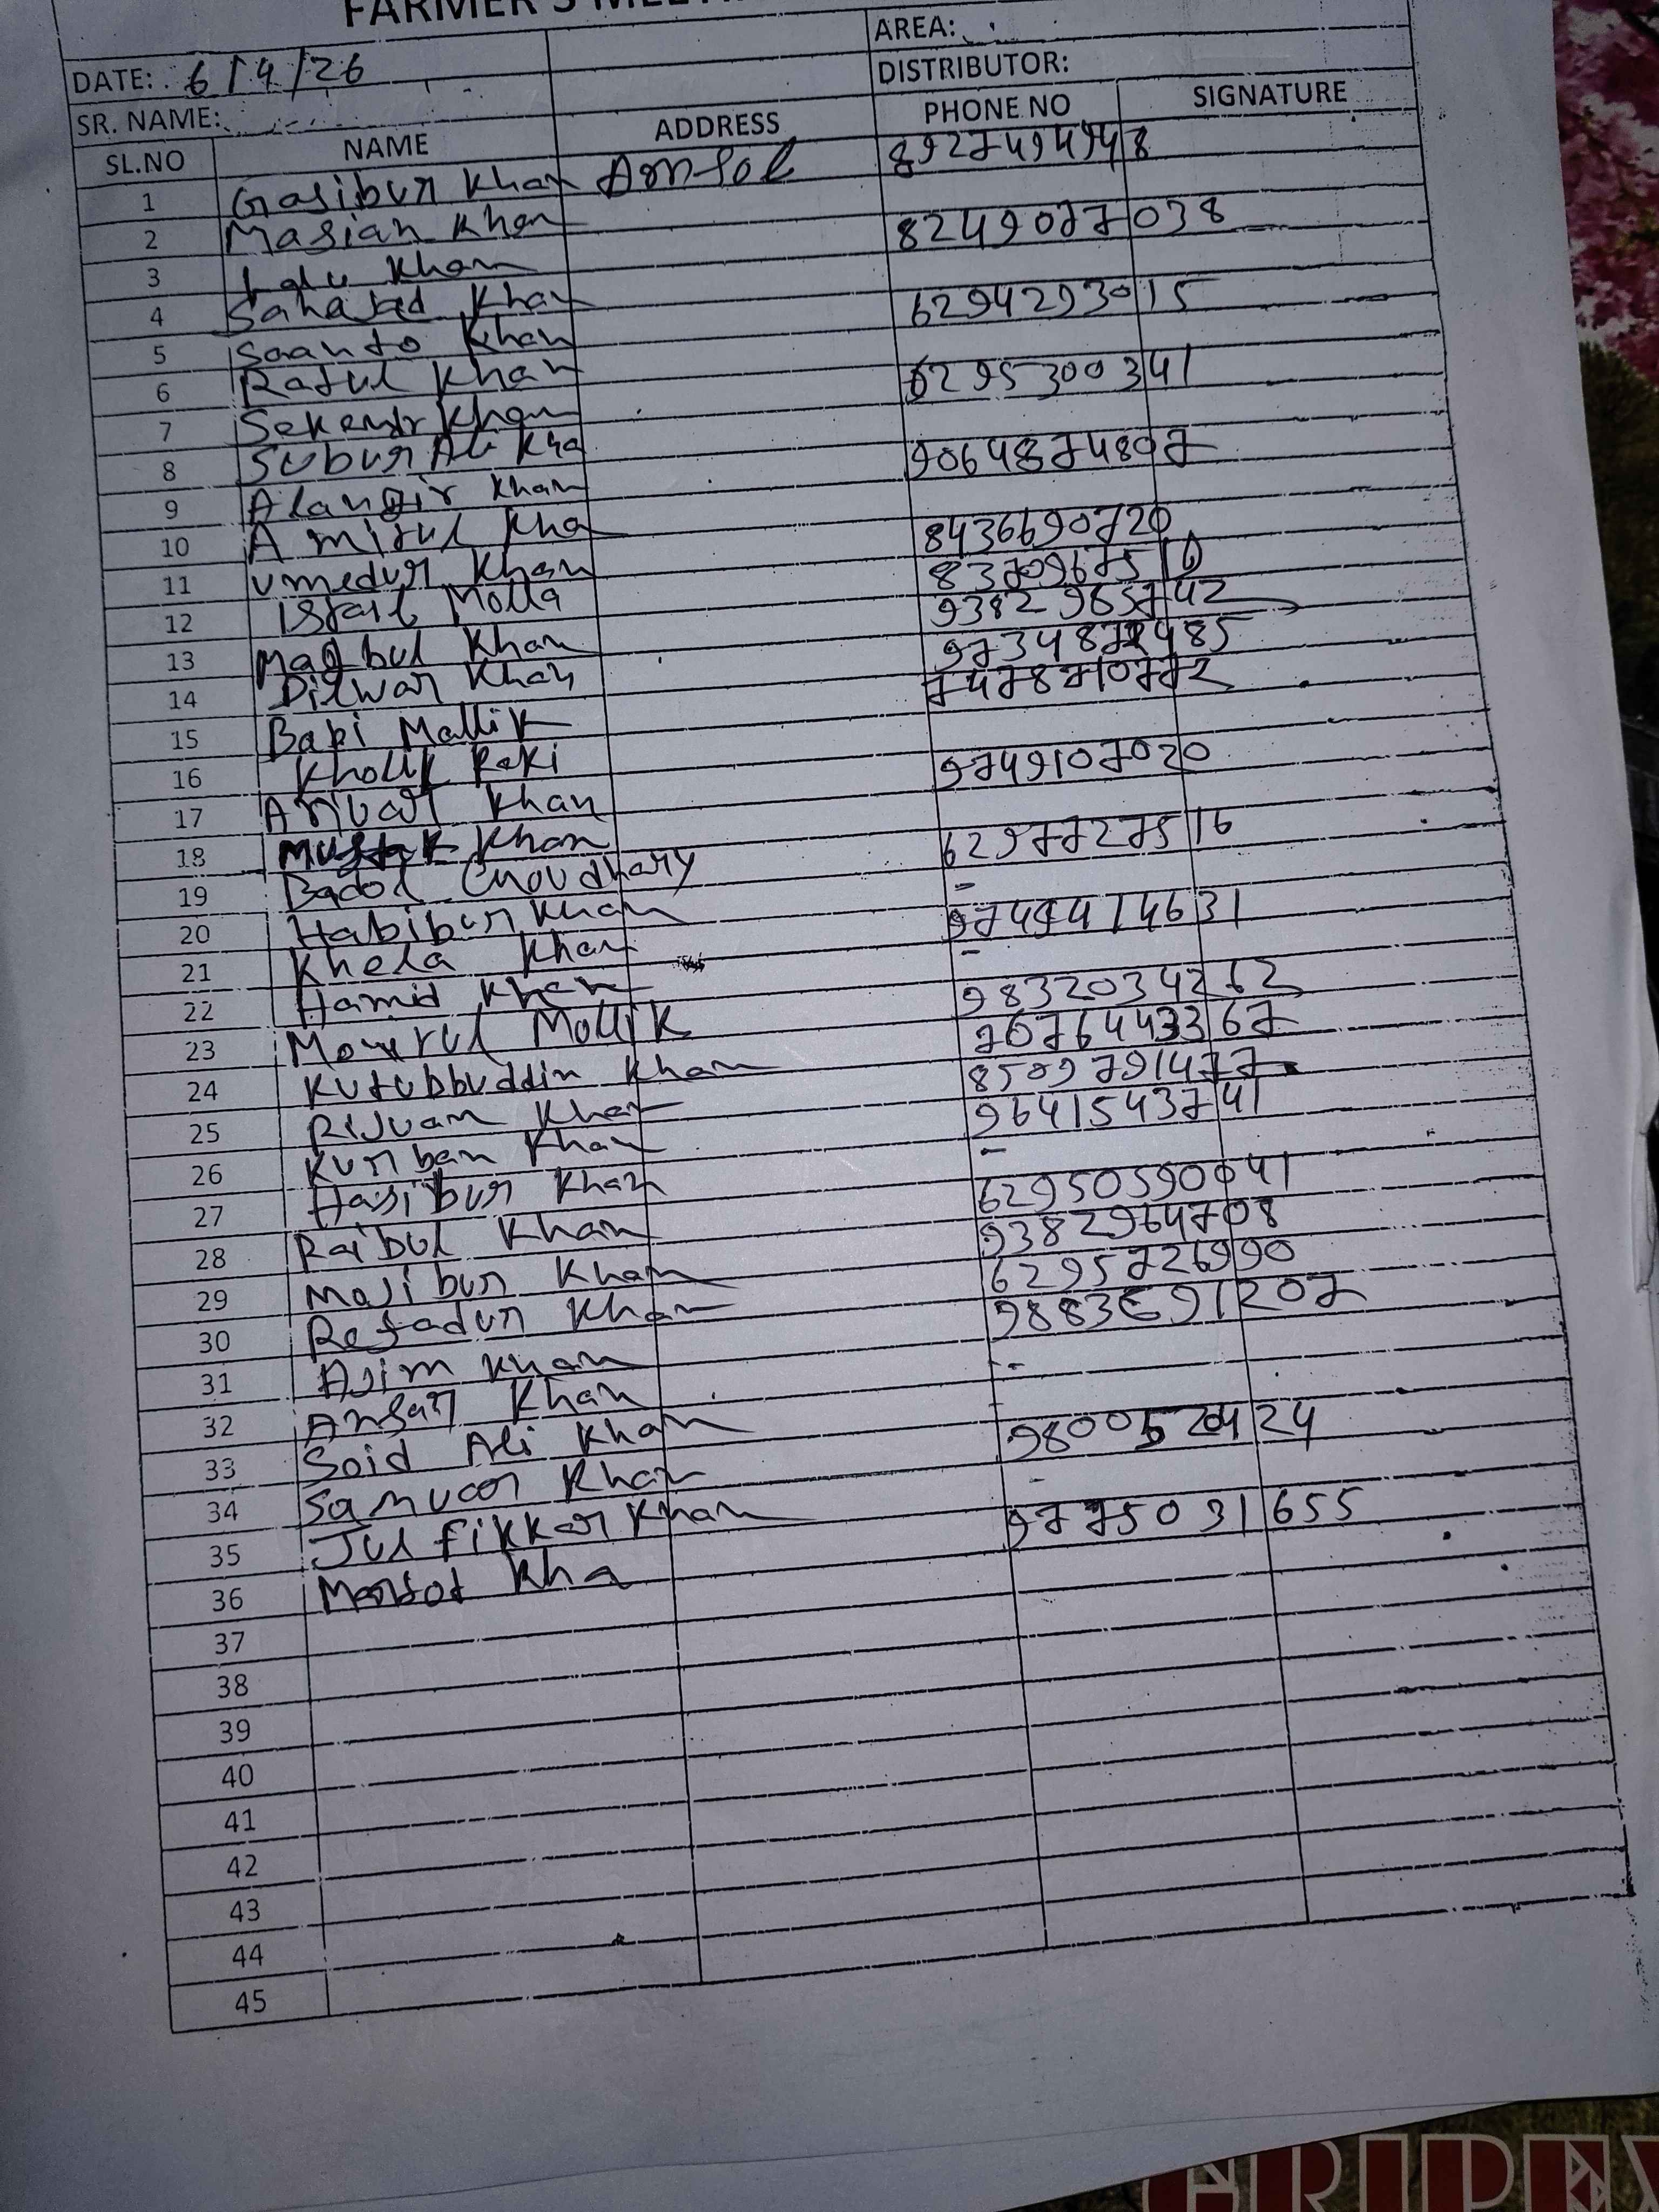 FARMER'S MEET
AREA:
DATE: 6/4/26
DISTRIBUTOR:
SR. NAME:
SL.NO NAME ADDRESS PHONE NO SIGNATURE
1 Gasibur Khan Amsol 8927494948
2 Masian Khan
3 Lalu Khan 8249077038
4 Sahajad Khan
5 Saanto Khan 6294293015
6 Ratul Khan
7 Sekendr Khan 6295300341
8 Subur Ali Kha
9 Alangir Khan 9064874807
10 Amirul Kha
11 Umedur Khan 8436690720
12 Israil Molla 8370967510
13 Maqbul Khan 9382965742
14 Dilwar Khan
15 Bapi Mallik 7478710772
16 Kholik Kaki
17 Anwar Khan 9749107020
18 Mustak Khan
19 Badol Choudhary 6297727516
20 Habibur Khan -
21 Khela Khan 9749414631
22 Hamid Khan -
23 Monirul Mollik 9832034262
24 Kutubbuddin Khan 7076443367
25 Rijuam Khan 8509791477
26 Kurban Khan 9641543741
27 Hasibur Khan -
28 Raibul Khan 6295059041
29 Mojibur Khan 9382964708
30 Refadur Khan 6295726990
31 Ajim Khan
32 Ansar Khan --
33 Soid Ali Khan -
34 Sanuar Khan 9800520424
35 Julfikkar Khan -
36 Kha 9775031655
37
38
39
40
41
42
43
44
45